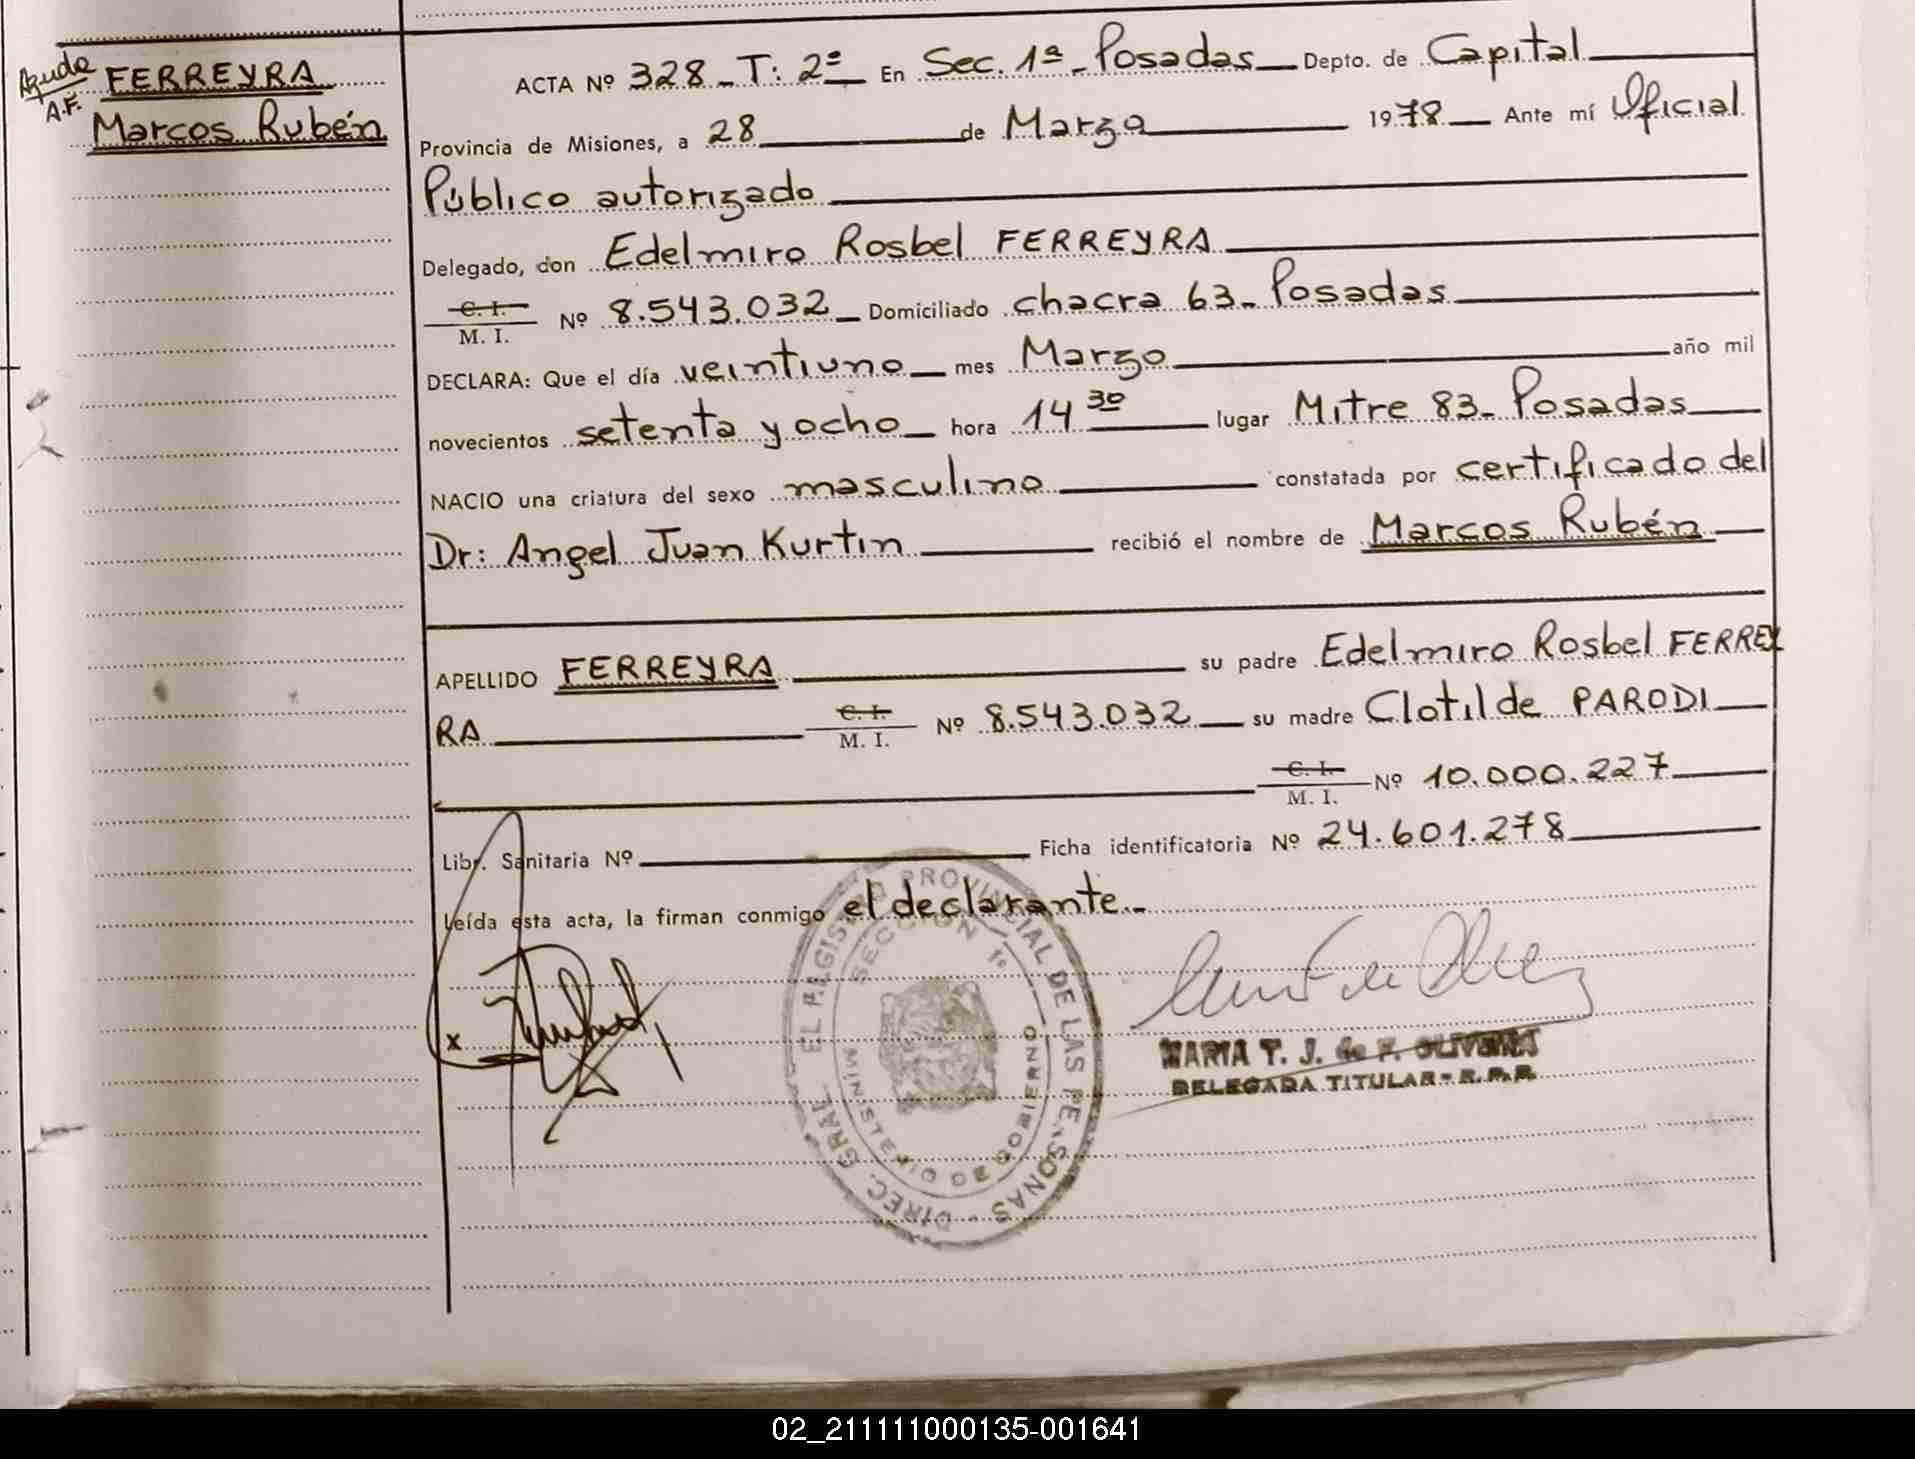 Ayuda
A.F.
FERREYRA
Marcos Rubén
ACTA Nº 328 - T: 2º - En Sec. 1ª - Posadas Depto. de Capital
Provincia de Misiones, a 28 de Marzo 1978 Ante mí Oficial
Público autorizado
Delegado, don Edelmiro Rosbel FERREYRA
C. I.
M. I.
Nº 8.543.032 Domiciliado chacra 63 - Posadas
DECLARA: Que el día veintiuno mes Marzo año mil
novecientos setenta y ocho hora 14 30 lugar Mitre 83 - Posadas
NACIO una criatura del sexo masculino constatada por certificado del
Dr: Angel Juan Kurtin recibió el nombre de Marcos Rubén
APELLIDO FERREYRA su padre Edelmiro Rosbel FERREY
RA C. I. M. I. Nº 8.543.032 su madre Clotilde PARODI
C. I. M. I. Nº 10.000.227
Libr. Sanitaria Nº Ficha identificatoria Nº 24.601.278
Leída esta acta, la firman conmigo el declarante.-
x
DIREC. GRAL. EL REGISTRO PROVINCIAL DE LAS PERSONAS -
SECCION 1º
MINISTERIO DE GOBIERNO
MARIA T. J. de F. OLIVEIRA
DELEGADA TITULAR - R.P.P.
02_211111000135-001641